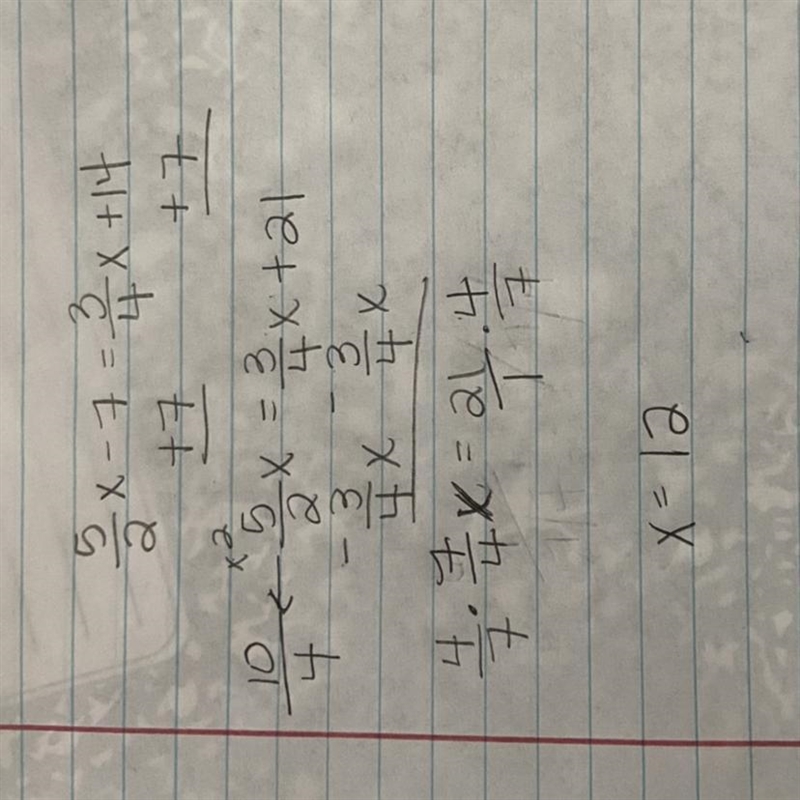 5/2 x - 7 = 3/4 x + 14
+7 +7
10/4 ← x2 5/2 x = 3/4 x + 21
- 3/4 x - 3/4 x
4/7 · 7/4 x = 21/1 · 4/7
x = 12